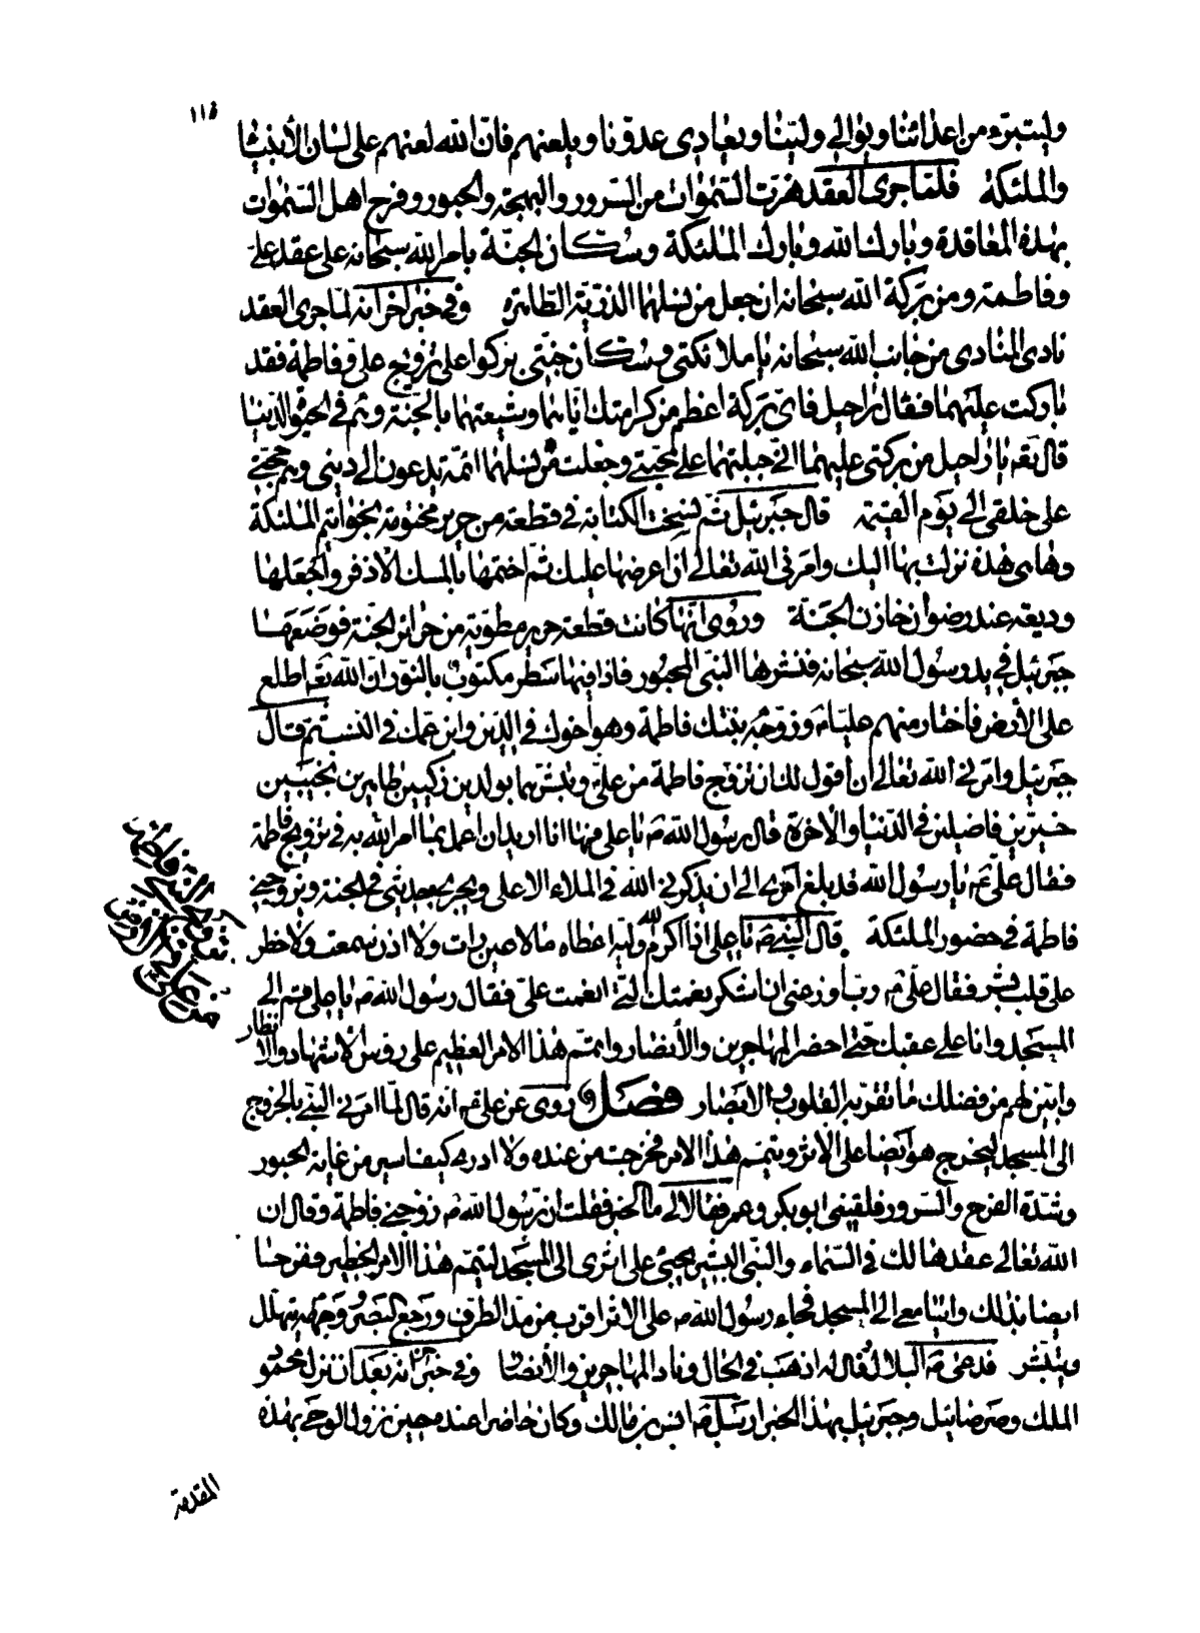 ١١٥
وليتبرء من اعدائنا ويوالي وليّنا ويعادى عدوّنا ويلعنهم فانّ الله لعنهم على لسان الأنبياء
والملئكة فلمّا جرى العقد هزّت السّموات من السّرور والبهجة والحبور وفرح اهل السّموات
بهذه المعاقدة وبارك الله وبارك الملئكة وسكّان الجنّة بامر الله سبحانه على عقد علىّ
وفاطمة ومن بركة الله سبحانه ان جعل من نسلهما الذرّيّة الطّاهرة وفي خبر اخر انه لمّا جرى العقد
نادى المنادى من جانب الله سبحانه يا ملائكتى وسكّان جنّتى بركوا على تزويج علىّ وفاطمة فقد
باركت عليهما فقال راحيل فاىّ بركة اعظم من كرامتك ايّاهما وشيعتهما بالجنّة وثم في الحيوة الدّنيا
قال تعه يا راحيل من بركتى عليهما انّي جبلتهما على محبّتي وجعلت من نسلهما ائمّة يدعون الى دينى وهم حججى
على خلقى الى يوم القيمة قال جبرئيل ثمّ نسخت الكتابة في قطعة من حرير مختومة بخواتيم الملئكة
وها هى هذه نزلت بها اليك وامرنى الله تعالى ان اعرضها عليك ثمّ اختمها بالمسك الاذفر واجعلها
وديعة عند رضوان خازن الجنّة وروى انّها كانت قطعة حرير مطويّة من حرائر الجنّة فوضعها
جبرئيل في يد رسول الله سبحانه فنشرها النبّى المحبور فاذا فيها سطر مكتوب بالنّور انّ الله تعه اطلع
على الأرض فاختار منهم عليّا وزوّجه بنتك فاطمة وهو اخوك في الدّين وابن عمّك في النّسب ثم قال
جبرئيل وامرنى الله تعالى ان اقول لك ان تزوّج فاطمة من علىّ وتبشّرهما بولدين زكيّين طاهرين نجيبين
خيّرين فاضلين في الدّنيا والاخرة قال رسول الله ص يا على مها انا اريد ان اعمل بما امر الله به في تزويج فاطمة
فقال علىّ ع يا رسول الله قد بلغ امرى الى ان يذكرنى الله في الملاء الاعلى ويجرى حديثى في الجنة وتزوجني
فاطمة في حضور الملئكة قال النّبى ص يا على اذا اكرم الله وليّه اعطاه ما لا عين رات ولا اذن سمعت ولا خطر
على قلب بشر فقال علىّ ع ربّ أوزعنى ان اشكر نعمتك الّتي انعمت علىّ فقال رسول الله ص يا على قم الى
المسجد وانا على عقبك حتى احضر المهاجرين والأنصار واتمّم هذا الامر العظيم على رؤس الاشهاد والانظار
وابيّن لهم من فضلك ما تقرّ به القلوب والابصار فصل روى عن على ع انه قال لمّا امرنى النّبي بالخروج
الى المسجد ليخرج هو ايضا على الاثر ويتمّم هذا الامر فخرجت من عنده ولا ادرى كيف اسير من غاية الحبور
وشدّة الفرح والسّرور فلقينى ابو بكر وعمر فقالا لى ما الخبر فقلت ان رسول الله ص زوّجني فاطمة وقال ان
الله تعالى عقدها لك في السّماء والنّبى البشير يجيئ على اثرى الى المسجد ليتمّم هذا الامر الخطير ففرحنا
ايضا بذلك واتيا معي الى المسجد فجاء رسول الله ص على الاثر اقرب من مدّ الطّرف ورجع البصر ووجهه يتهلّل
ويتبشّر فدعى ص البلال فقال له اذهب في الحال وناد المهاجرين والأنصار وفي خبر اخر انه بعد ان نزل محمود
الملك وصرصائيل وجبرئيل بهذا الخبر ارسل ص انس بن مالك وكان حاضرا عنده حين نزول الوحى بهذه
تزويج النّبى فاطمة
من على في
المقدمة